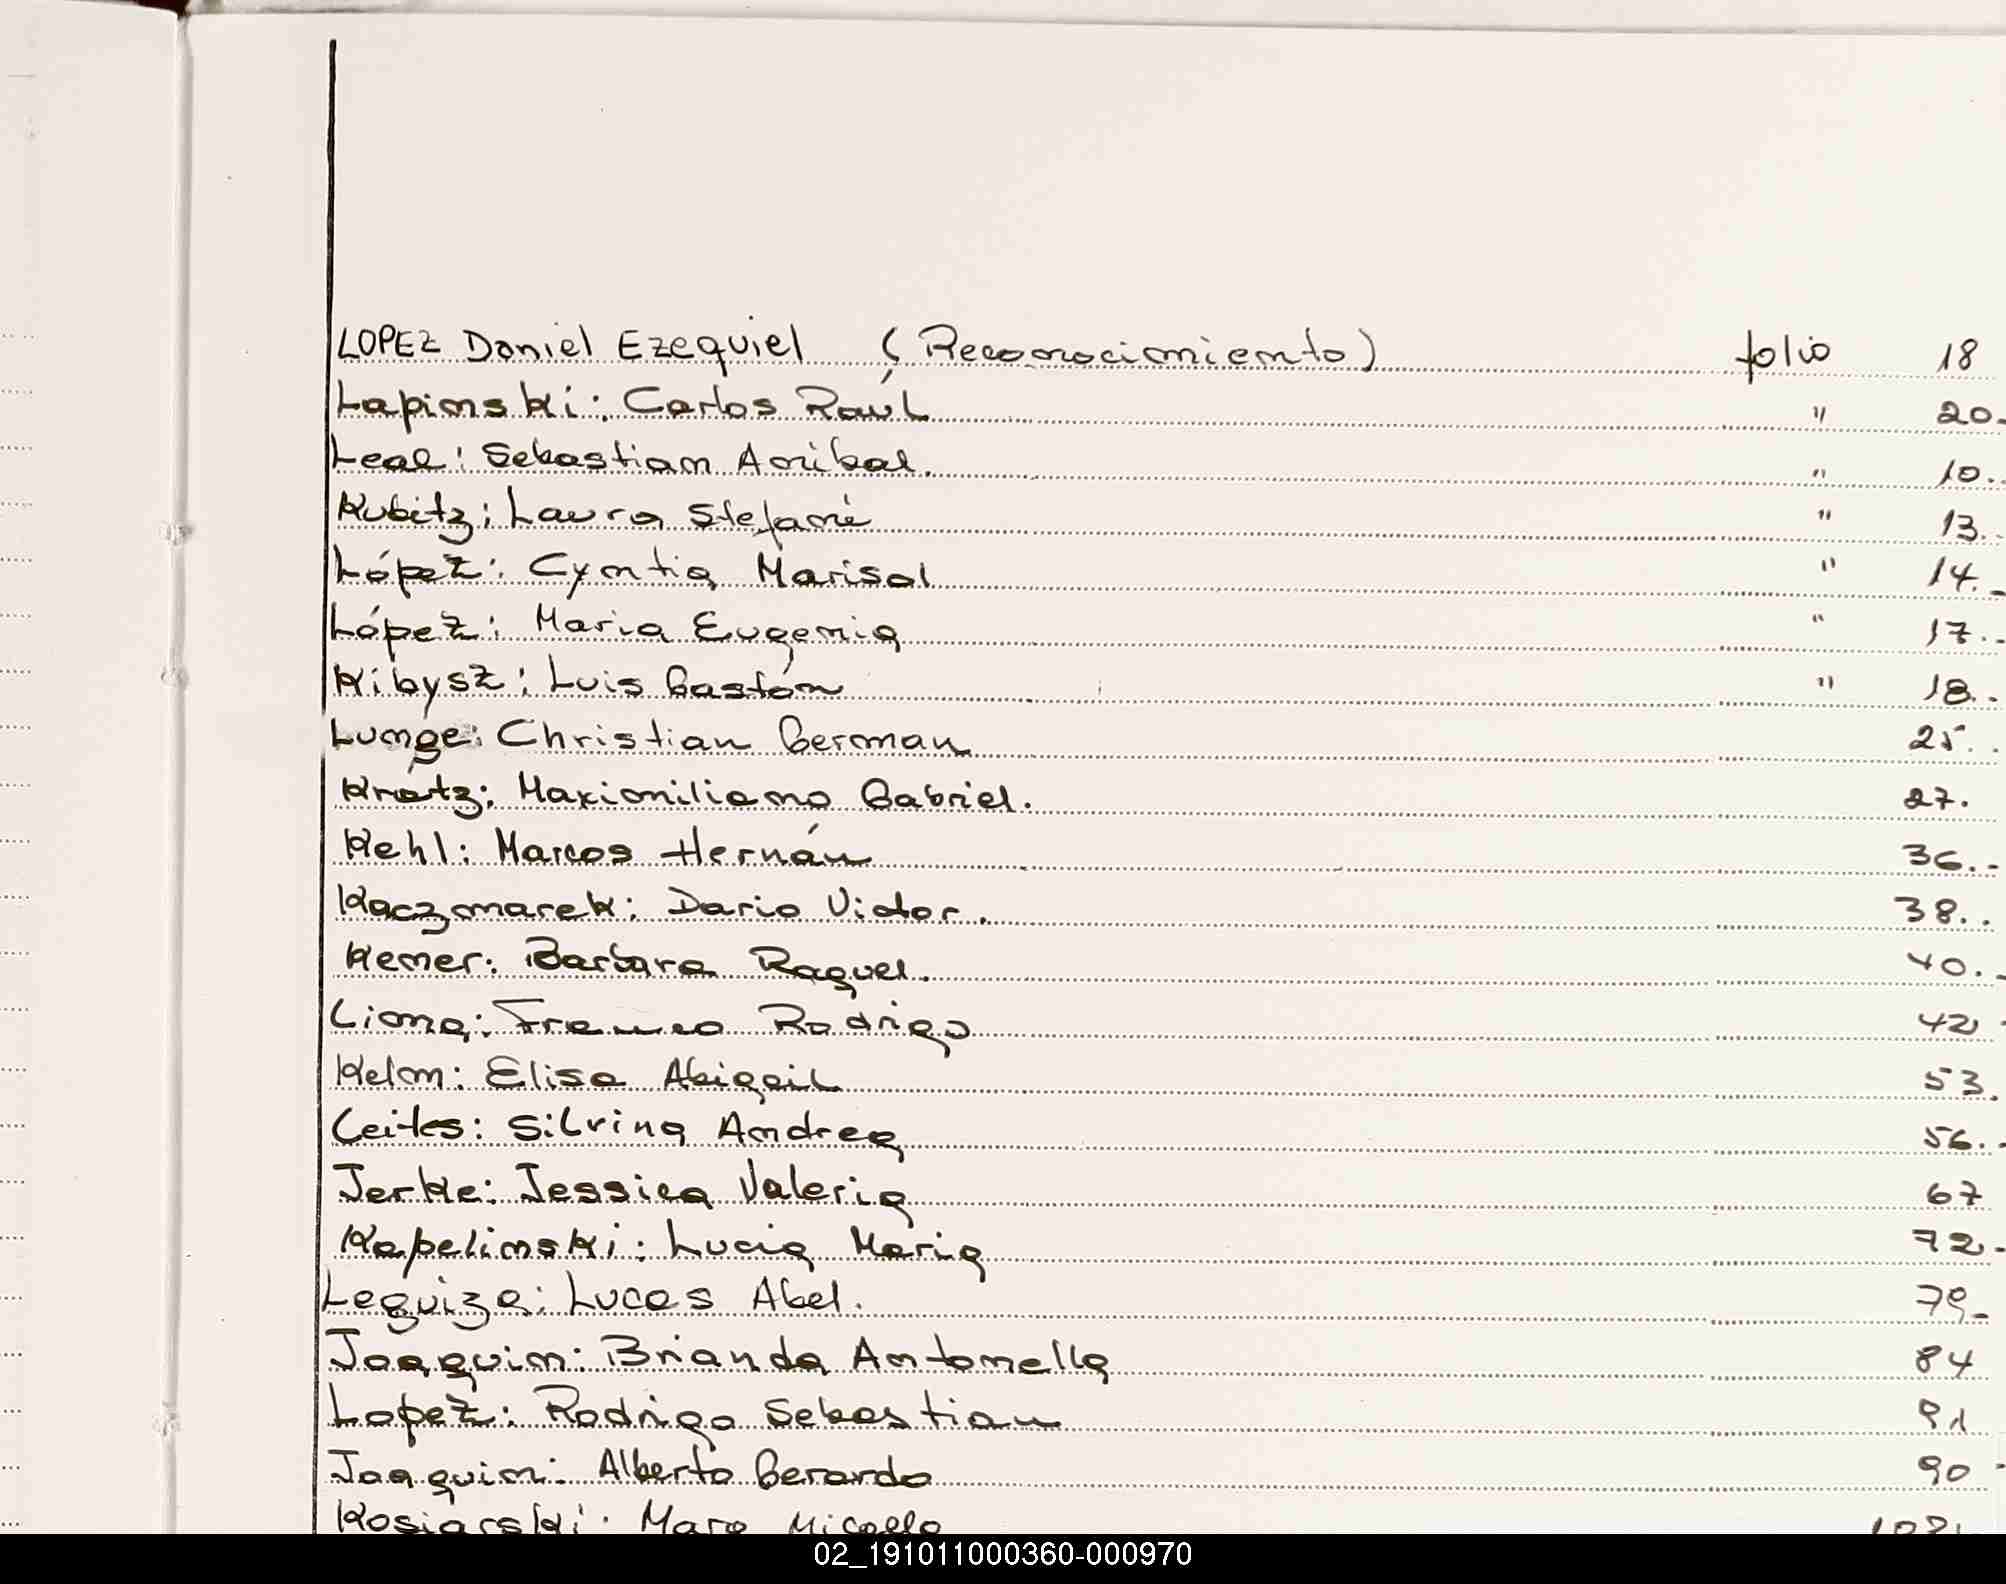 LOPEZ Daniel Ezequiel (Reconocimiento) folio 18
Lapinski: Carlos Raúl " 20.
Leal: Sebastian Anibal. " 10..
Kubitz: Laura Stefani " 13..
López: Cyntia Marisol " 14.-
López: Maria Eugenia " 17..
Kibysz: Luis Gastón " 18..
Lunge: Christian German 25..
Kratz: Maximiliano Gabriel. 27.
Kehl: Marcos Hernán 36.-
Kaczmarek: Dario Victor. 38..
Kemer: Barbara Raquel. 40.-
Liona: Franco Rodrigo 42
Kelm: Elisa Abigail 53.
Leites: Silvina Andrea 56.-
Jerke: Jessica Valeria 67
Kapelinski: Lucia Maria 72-
Leguiza: Lucas Abel. 79-
Joaquim: Brianda Antonella 84
Lopez: Rodrigo Sebastian 91
Joaquim: Alberto Gerardo 90
Kosiarski:
02_191011000360-000970